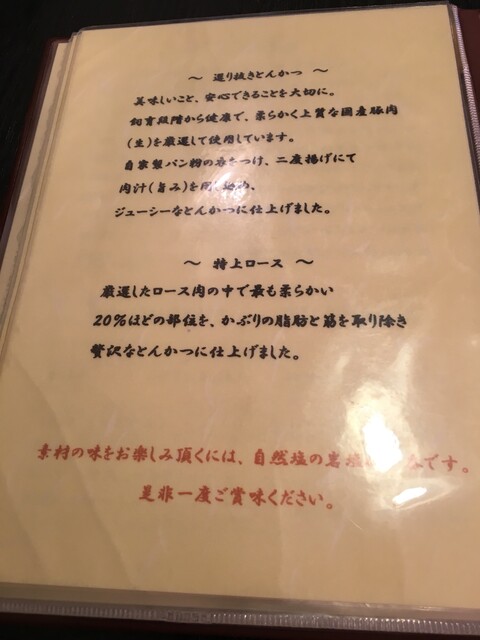 ～ 選り抜きとんかつ ～
美味しいこと、安心できることを大切に。
飼育段階から健康で、柔らかく上質な国産豚肉
(生)を厳選して使用しています。
自家製パン粉の衣をつけ、二度揚げにて
肉汁(旨み)を閉じ込め、
ジューシーなとんかつに仕上げました。
～ 特上ロース ～
厳選したロース肉の中で最も柔らかい
20%ほどの部位を、かぶりの脂肪と筋を取り除き
贅沢なとんかつに仕上げました。
素材の味をお楽しみ頂くには、自然塩の岩塩です。
是非一度ご賞味ください。